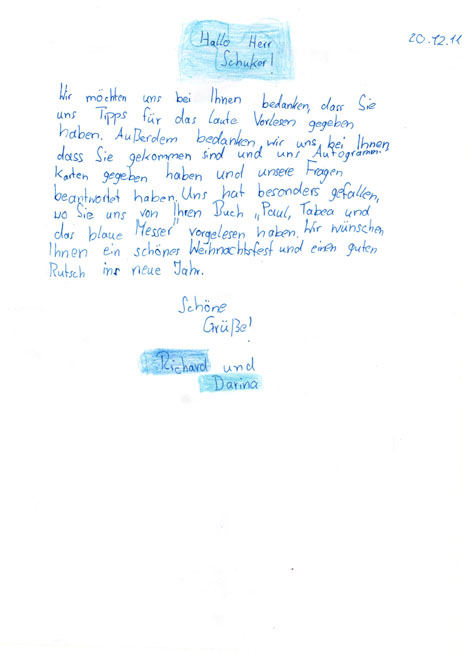 20.12.11
Hallo Herr
Schuker!
Wir möchten uns bei Ihnen bedanken, dass Sie
uns Tipps für das laute Vorlesen gegeben
haben. Außerdem bedanken wir uns bei Ihnen,
dass Sie gekommen sind und uns Autogramm-
karten gegeben haben und unsere Fragen
beantwortet haben. Uns hat besonders gefallen,
wo Sie uns von Ihren Buch „Paul, Tabea und
das blaue Messer" vorgelesen haben. Wir wünschen
Ihnen ein schönes Weihnachtsfest und einen guten
Rutsch ins neue Jahr.
Schöne
Grüße!
Richard und
Darina